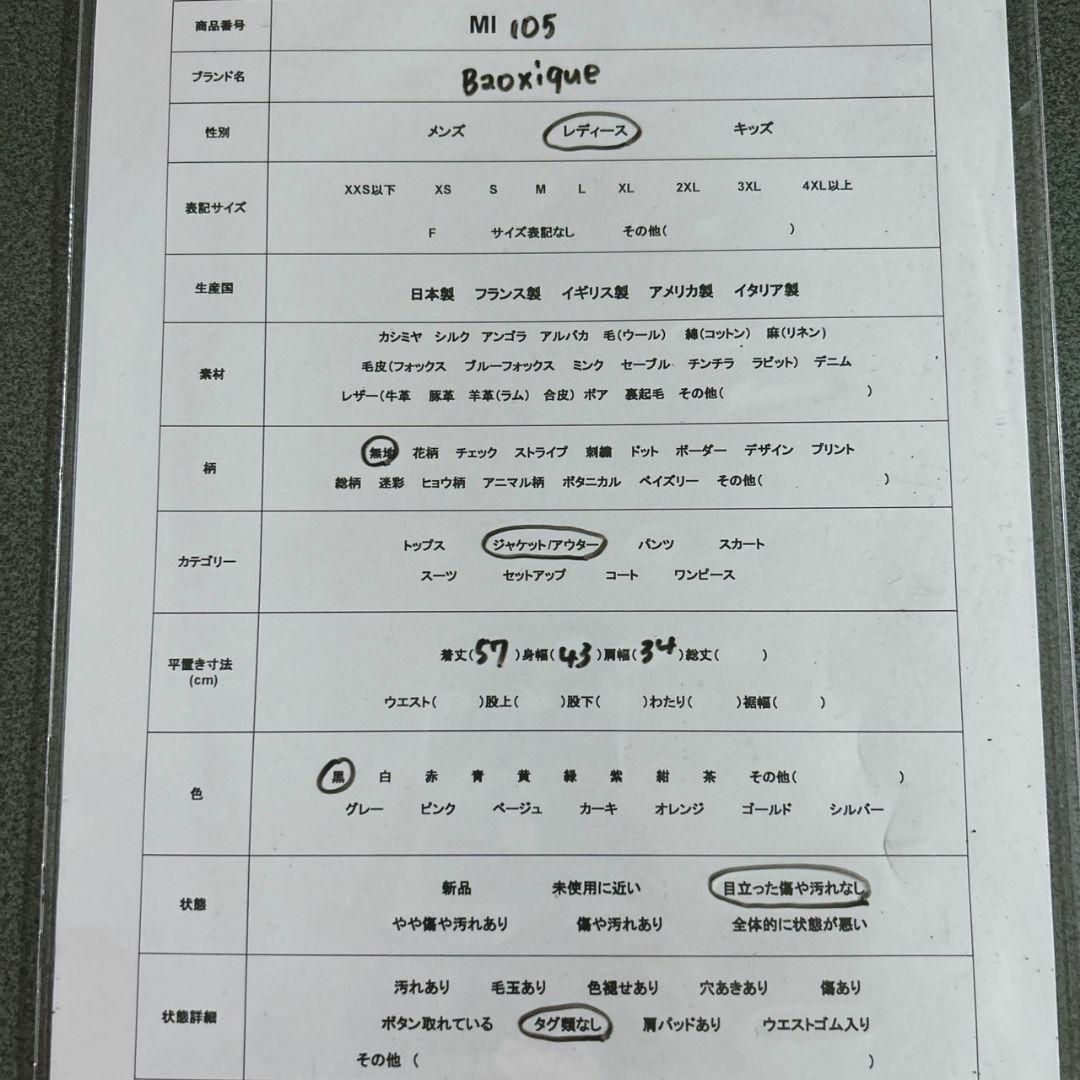 商品番号 MI 105
ブランド名 Baoxique
性別 メンズ レディース キッズ
表記サイズ XXS以下 XS S M L XL 2XL 3XL 4XL以上
F サイズ表記なし その他( )
生産国 日本製 フランス製 イギリス製 アメリカ製 イタリア製
素材 カシミヤ シルク アンゴラ アルパカ 毛(ウール) 綿(コットン) 麻(リネン)
毛皮(フォックス ブルーフォックス ミンク セーブル チンチラ ラビット) デニム
レザー(牛革 豚革 羊革(ラム) 合皮) ボア 裏起毛 その他( )
柄 無地 花柄 チェック ストライプ 刺繍 ドット ボーダー デザイン プリント
総柄 迷彩 ヒョウ柄 アニマル柄 ボタニカル ペイズリー その他( )
カテゴリー トップス ジャケット/アウター パンツ スカート
スーツ セットアップ コート ワンピース
平置き寸法 (cm) 着丈(57)身幅(43)肩幅(34)総丈( )
ウエスト( )股上( )股下( )わたり( )裾幅( )
色 黒 白 赤 青 黄 緑 紫 紺 茶 その他( )
グレー ピンク ベージュ カーキ オレンジ ゴールド シルバー
状態 新品 未使用に近い 目立った傷や汚れなし
やや傷や汚れあり 傷や汚れあり 全体的に状態が悪い
状態詳細 汚れあり 毛玉あり 色褪せあり 穴あきあり 傷あり
ボタン取れている タグ類なし 肩パッドあり ウエストゴム入り
その他 ( )